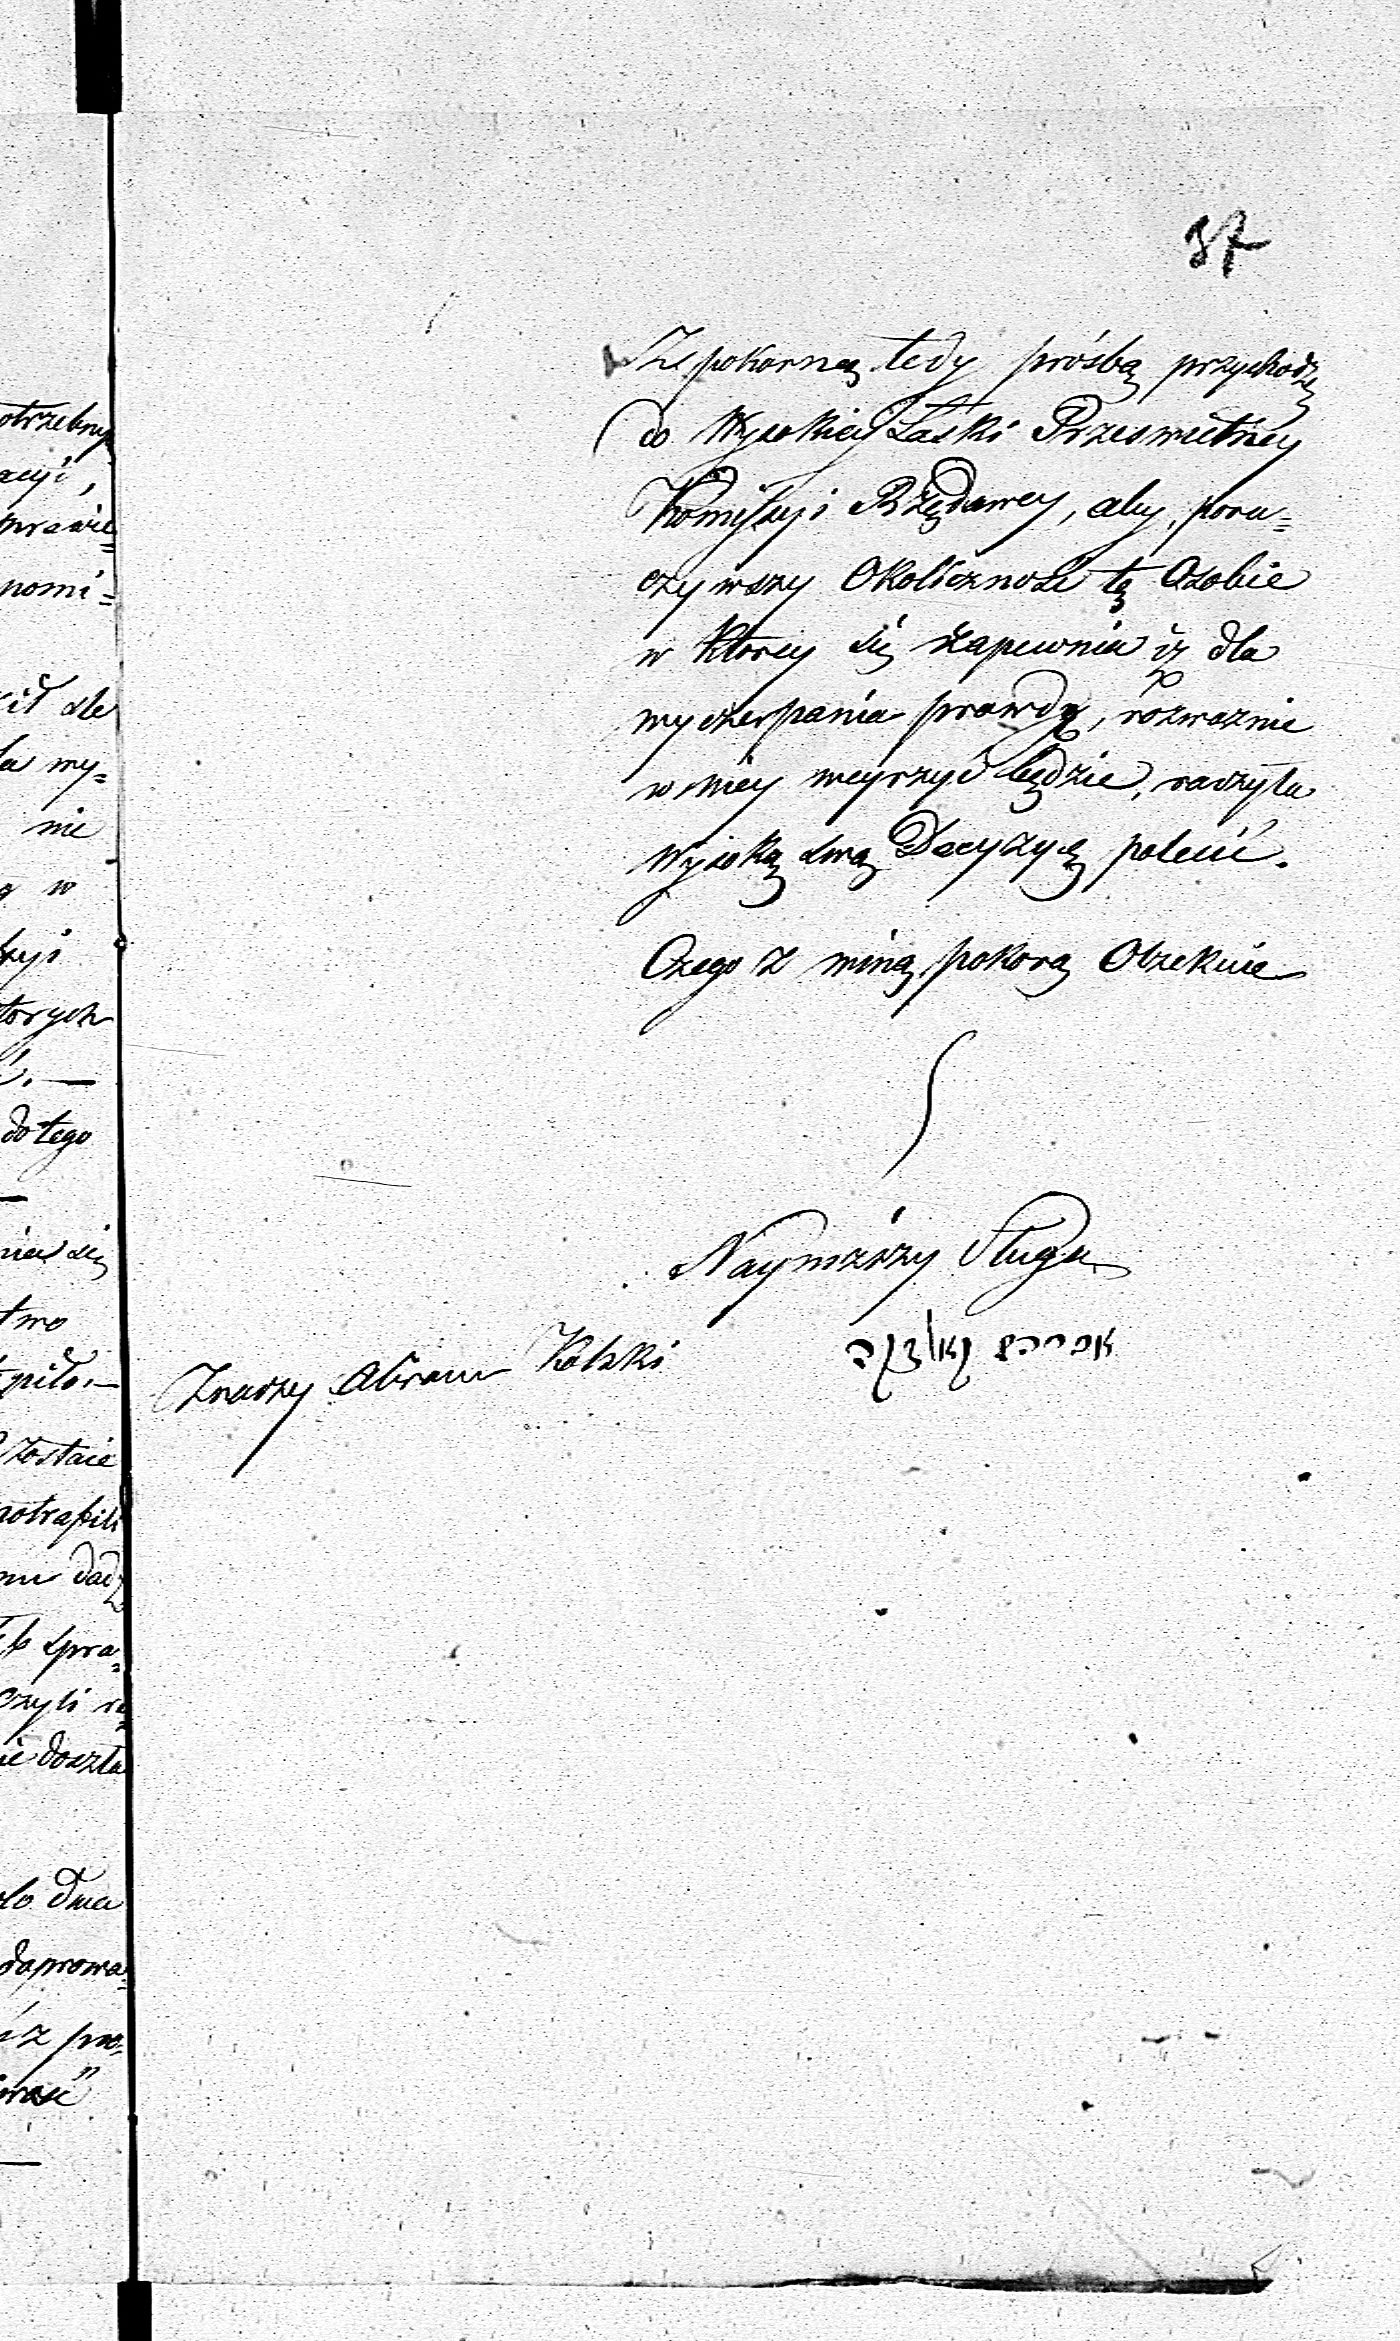 37
Ze pokorną tedy prośbą przychodzę
do Wysokiey Łaski Prześwietney
Kommissyi Rządowey, aby, poru=
czywszy Okoliczność tę Osobie
w ktorey się zapewnia iż dla
wyczerpania prawdy, rózwaznie
w niey weyrzyć będzie, raczyła
wysoką swą Decyzyą polecić.
Czego z winą pokorą Oczekuie
Nayniższy Sługa
Znaczy Abram Kolski
otrzebny
acyi,
prawie=
pomi=
ił się
ła wy=
nie
ą w
zyi
torych
ć. —
do tego
nia się
two
piło. —
zostaie
potrafili
mu dadz
spra=
czyli
ie doszła
ło dwa
doprowa=
z po=